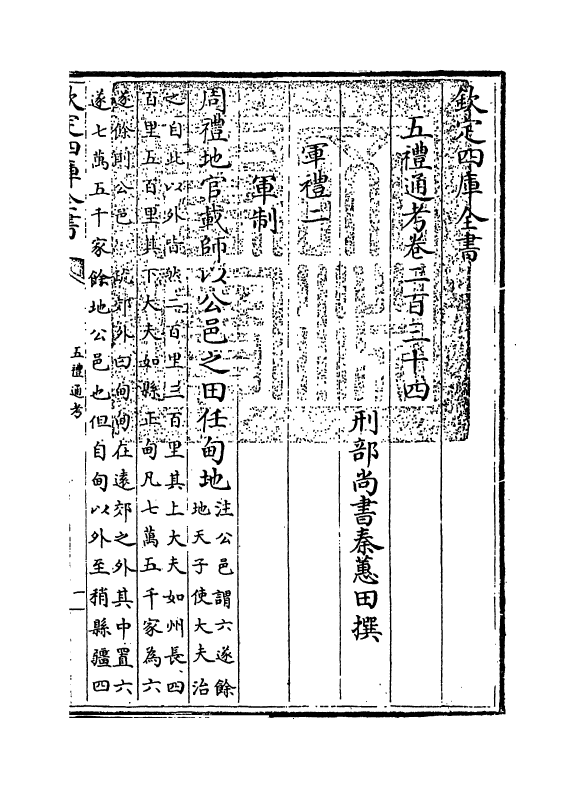 欽定四庫全書
五禮通考卷二百三十四
刑部尚書秦蕙田撰
軍禮二
軍制
周禮地官載師以公邑之田任甸地
注公邑謂六遂餘
地天子使大夫治
之自此以外皆然二百里三百里其上大夫如州長四
百里五百里其下大夫如縣正甸凡七萬五千家為六
遂餘則公邑 疏郊外曰甸甸在遠郊之外其中置六
遂七萬五千家餘地公邑也但自甸以外至稍縣疆四
欽定四庫全書
五禮通考
一